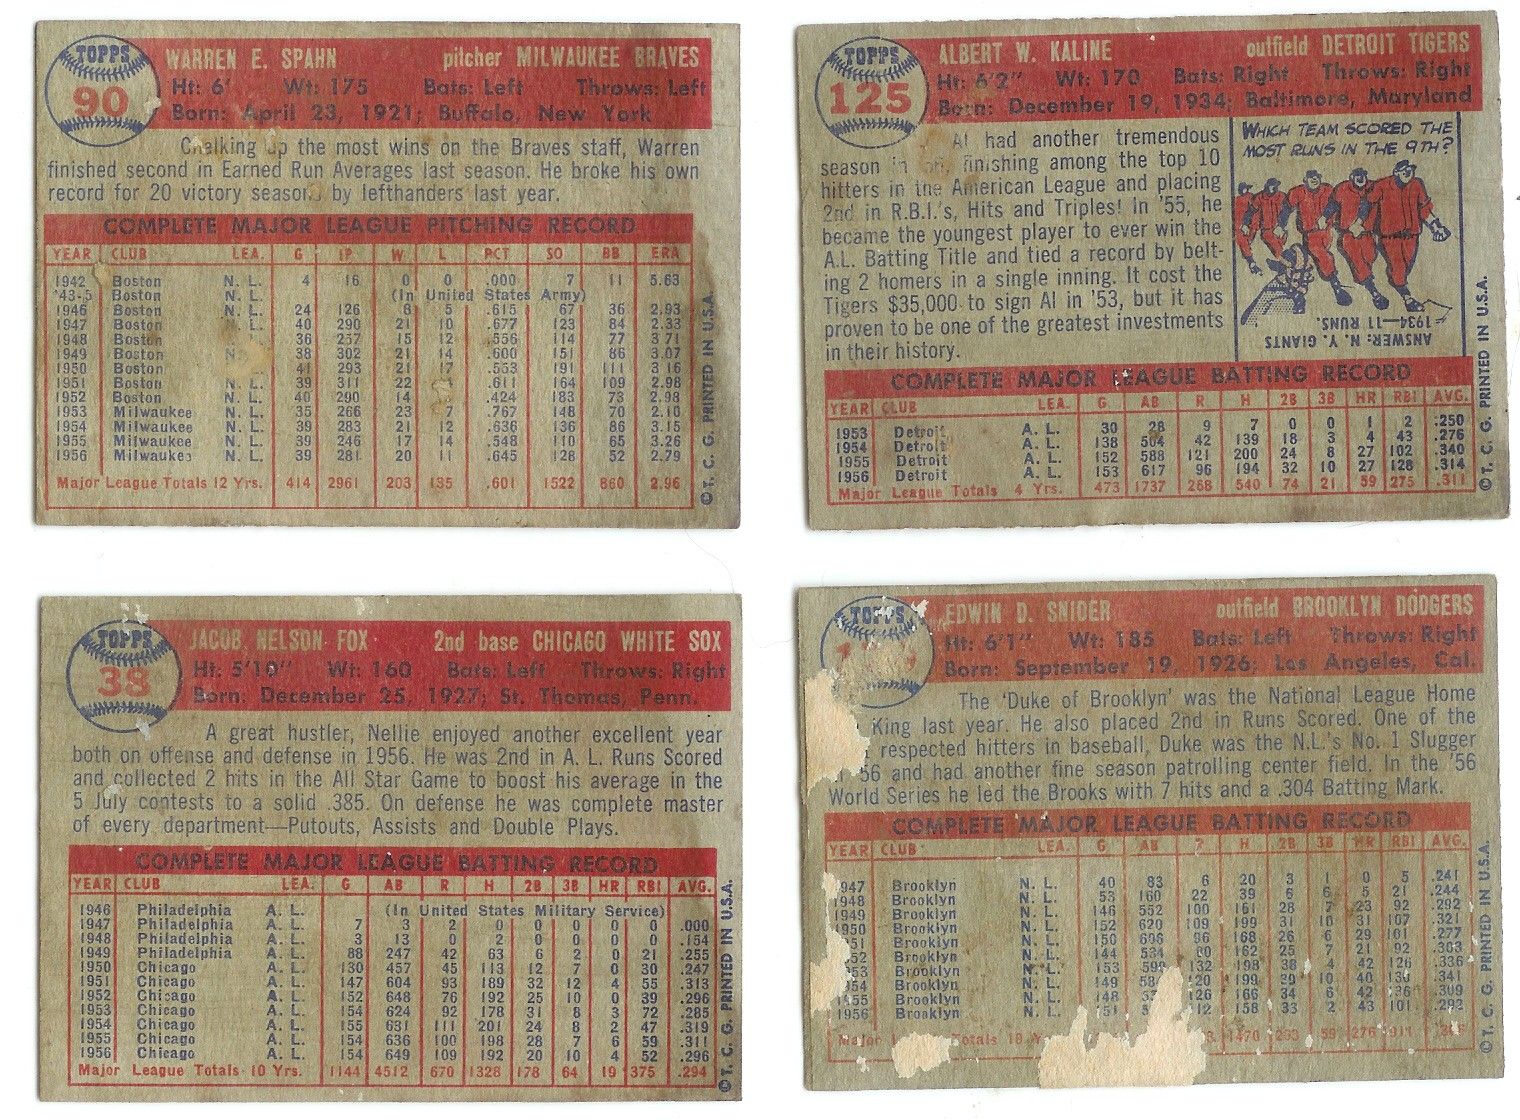 TOPPS
90
WARREN E. SPAHN pitcher MILWAUKEE BRAVES
Ht: 6' Wt: 175 Bats: Left Throws: Left
Born: April 23, 1921; Buffalo, New York
Chalking up the most wins on the Braves staff, Warren
finished second in Earned Run Averages last season. He broke his own
record for 20 victory seasons by lefthanders last year.
COMPLETE MAJOR LEAGUE PITCHING RECORD
YEAR CLUB LEA. G IP W L PCT SO BB ERA
1942 Boston N. L. 4 16 0 0 .000 7 11 5.63
'43-5 Boston N. L. (In United States Army)
1946 Boston N. L. 24 126 8 5 .615 67 36 2.93
1947 Boston N. L. 40 290 21 10 .677 123 84 2.33
1948 Boston N. L. 36 257 15 12 .556 114 77 3.71
1949 Boston 38 302 21 14 .600 151 86 3.07
1950 Boston N. L. 41 293 21 17 .553 191 111 3.16
1951 Boston N. L. 39 311 22 14 .611 164 109 2.98
1952 Boston N. L. 40 290 14 .424 183 73 2.98
1953 Milwaukee N. L. 35 266 23 7 .767 148 70 2.10
1954 Milwaukee N. L. 39 283 21 12 .636 136 86 3.15
1955 Milwaukee N. L. 39 246 17 14 .548 110 65 3.26
1956 Milwaukee N. L. 39 281 20 11 .645 128 52 2.79
Major League Totals 12 Yrs. 414 2961 203 135 .601 1522 860 2.96
© T. C. G. PRINTED IN U.S.A.
TOPPS
125
ALBERT W. KALINE outfield DETROIT TIGERS
Ht: 6'2" Wt: 170 Bats: Right Throws: Right
Born: December 19, 1934; Baltimore, Maryland
Al had another tremendous
season in finishing among the top 10
hitters in the American League and placing
2nd in R.B.I.'s, Hits and Triples! In '55, he
became the youngest player to ever win the
A.L. Batting Title and tied a record by belt-
ing 2 homers in a single inning. It cost the
Tigers $35,000 to sign Al in '53, but it has
proven to be one of the greatest investments
in their history.
WHICH TEAM SCORED THE
MOST RUNS IN THE 9TH?
ANSWER: N. Y. GIANTS
1934—11 RUNS.
COMPLETE MAJOR LEAGUE BATTING RECORD
YEAR CLUB LEA. G AB R H 2B 3B HR RBI AVG.
1953 Detroit A. L. 30 28 9 7 0 0 1 2 .250
1954 Detroit A. L. 138 504 42 139 18 3 4 43 .276
1955 Detroit A. L. 152 588 121 200 24 8 27 102 .340
1956 Detroit A. L. 153 617 96 194 32 10 27 128 .314
Major League Totals 4 Yrs. 473 1737 268 540 74 21 59 275 .311
© T. C. G. PRINTED IN U.S.A.
TOPPS
38
JACOB NELSON FOX 2nd base CHICAGO WHITE SOX
Ht: 5'10" Wt: 160 Bats: Left Throws: Right
Born: December 25, 1927; St. Thomas, Penn.
A great hustler, Nellie enjoyed another excellent year
both on offense and defense in 1956. He was 2nd in A. L. Runs Scored
and collected 2 hits in the All Star Game to boost his average in the
5 July contests to a solid .385. On defense he was complete master
of every department—Putouts, Assists and Double Plays.
COMPLETE MAJOR LEAGUE BATTING RECORD
YEAR CLUB LEA. G AB R H 2B 3B HR RBI AVG.
1946 Philadelphia A. L. (In United States Military Service)
1947 Philadelphia A. L. 7 3 2 0 0 0 0 0 .000
1948 Philadelphia A. L. 3 13 0 2 0 0 0 0 .154
1949 Philadelphia A. L. 88 247 42 63 6 2 0 21 .255
1950 Chicago A. L. 130 457 45 113 12 7 0 30 .247
1951 Chicago A. L. 147 604 93 189 32 12 4 55 .313
1952 Chicago A. L. 152 648 76 192 25 10 0 39 .296
1953 Chicago A. L. 154 624 92 178 31 8 3 72 .285
1954 Chicago A. L. 155 631 111 201 24 8 2 47 .319
1955 Chicago A. L. 154 636 100 198 28 7 6 59 .311
1956 Chicago A. L. 154 649 109 192 20 10 4 52 .296
Major League Totals 10 Yrs. 1144 4512 670 1328 178 64 19 375 .294
© T. C. G. PRINTED IN U.S.A.
TOPPS
EDWIN D. SNIDER outfield BROOKLYN DODGERS
Ht: 6'1" Wt: 185 Bats: Left Throws: Right
Born: September 19, 1926; Los Angeles, Cal.
The 'Duke of Brooklyn' was the National League Home
King last year. He also placed 2nd in Runs Scored. One of the
respected hitters in baseball, Duke was the N.L.'s No. 1 Slugger
'56 and had another fine season patrolling center field. In the '56
World Series he led the Brooks with 7 hits and a .304 Batting Mark.
COMPLETE MAJOR LEAGUE BATTING RECORD
YEAR CLUB LEA. G AB H 2B 3B HR RBI AVG.
1947 Brooklyn N. L. 40 83 6 20 3 1 0 5 .241
1948 Brooklyn N. L. 53 160 22 39 6 6 5 21 .244
1949 Brooklyn N. L. 146 552 100 161 28 7 23 92 .292
1950 Brooklyn N. L. 152 620 109 199 31 10 31 107 .321
1951 Brooklyn N. L. 150 696 96 168 26 6 29 101 .277
1952 Brooklyn N. L. 144 534 80 162 25 7 21 92 .303
1953 Brooklyn N. L. 153 132 198 38 4 42 126 .336
1954 Brooklyn N. L. 149 584 120 199 39 10 40 .341
1955 Brooklyn N. L. 148 126 166 34 6 42 136 .309
1956 Brooklyn N. L. 151 158 33 2 43 101 .292
Major League Totals 10 1470 59 276
© T. C. G. PRINTED IN U.S.A.